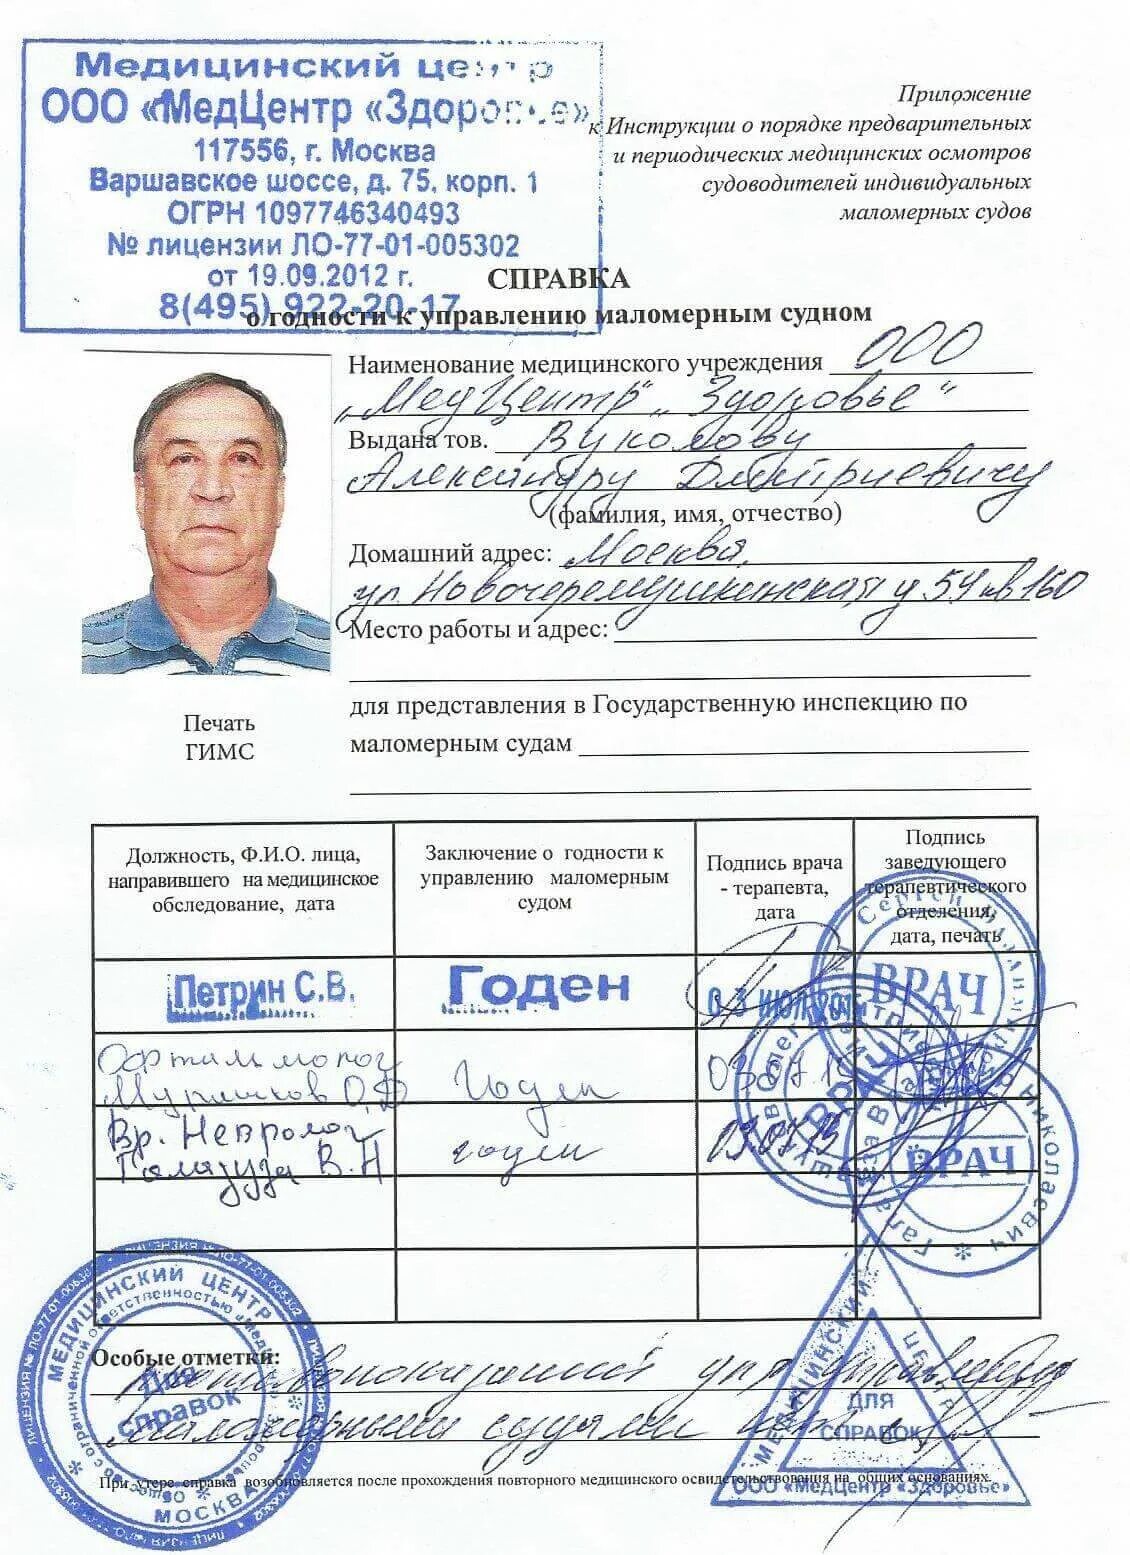 Медицинский центр
ООО «МедЦентр «Здоровье»
117556, г. Москва
Варшавское шоссе, д. 75, корп. 1
ОГРН 1097746340493
№ лицензии ЛО-77-01-005302
от 19.09.2012 г.
8(495) 922-20-17
Приложение
к Инструкции о порядке предварительных
и периодических медицинских осмотров
судоводителей индивидуальных
маломерных судов
СПРАВКА
о годности к управлению маломерным судном
Наименование медицинского учреждения ООО
„МедЦентр" „Здоровье"
Выдана тов. Вуколову
Александру Дмитриевичу
(фамилия, имя, отчество)
Домашний адрес: Москва,
ул. Новочеремушкинская 59 кв 160
Место работы и адрес:
для представления в Государственную инспекцию по
маломерным судам
Печать
ГИМС
Должность, Ф.И.О. лица,
направившего на медицинское
обследование, дата
Заключение о годности к
управлению маломерным
судом
Подпись врача
- терапевта,
дата
Подпись
заведующего
терапевтического
отделения,
дата, печать
Петрин С.В.
Годен
03 ИЮЛ 2015
Офтальмолог
О.Д
Годен
03.07.15
Вр. Невролог
Галагуза В.Н
годен
03.07.15
ВРАЧ
ВРАЧ
ВРАЧ
Николаевич
Особые отметки:
противопоказаний упр
маломерными судами нет
При утере справка возобновляется после прохождения повторного медицинского освидетельствования на общих основаниях.
МЕДИЦИНСКИЙ ЦЕНТР
Для
справок
МОСКВА
МЕДИЦИНСКИЙ ЦЕНТР
ДЛЯ
СПРАВОК
ООО «МедЦентр «Здоровье»